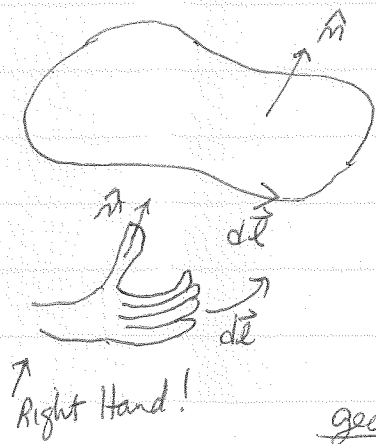 n̂
dl⃗
n̂
dl⃗
Right Hand!